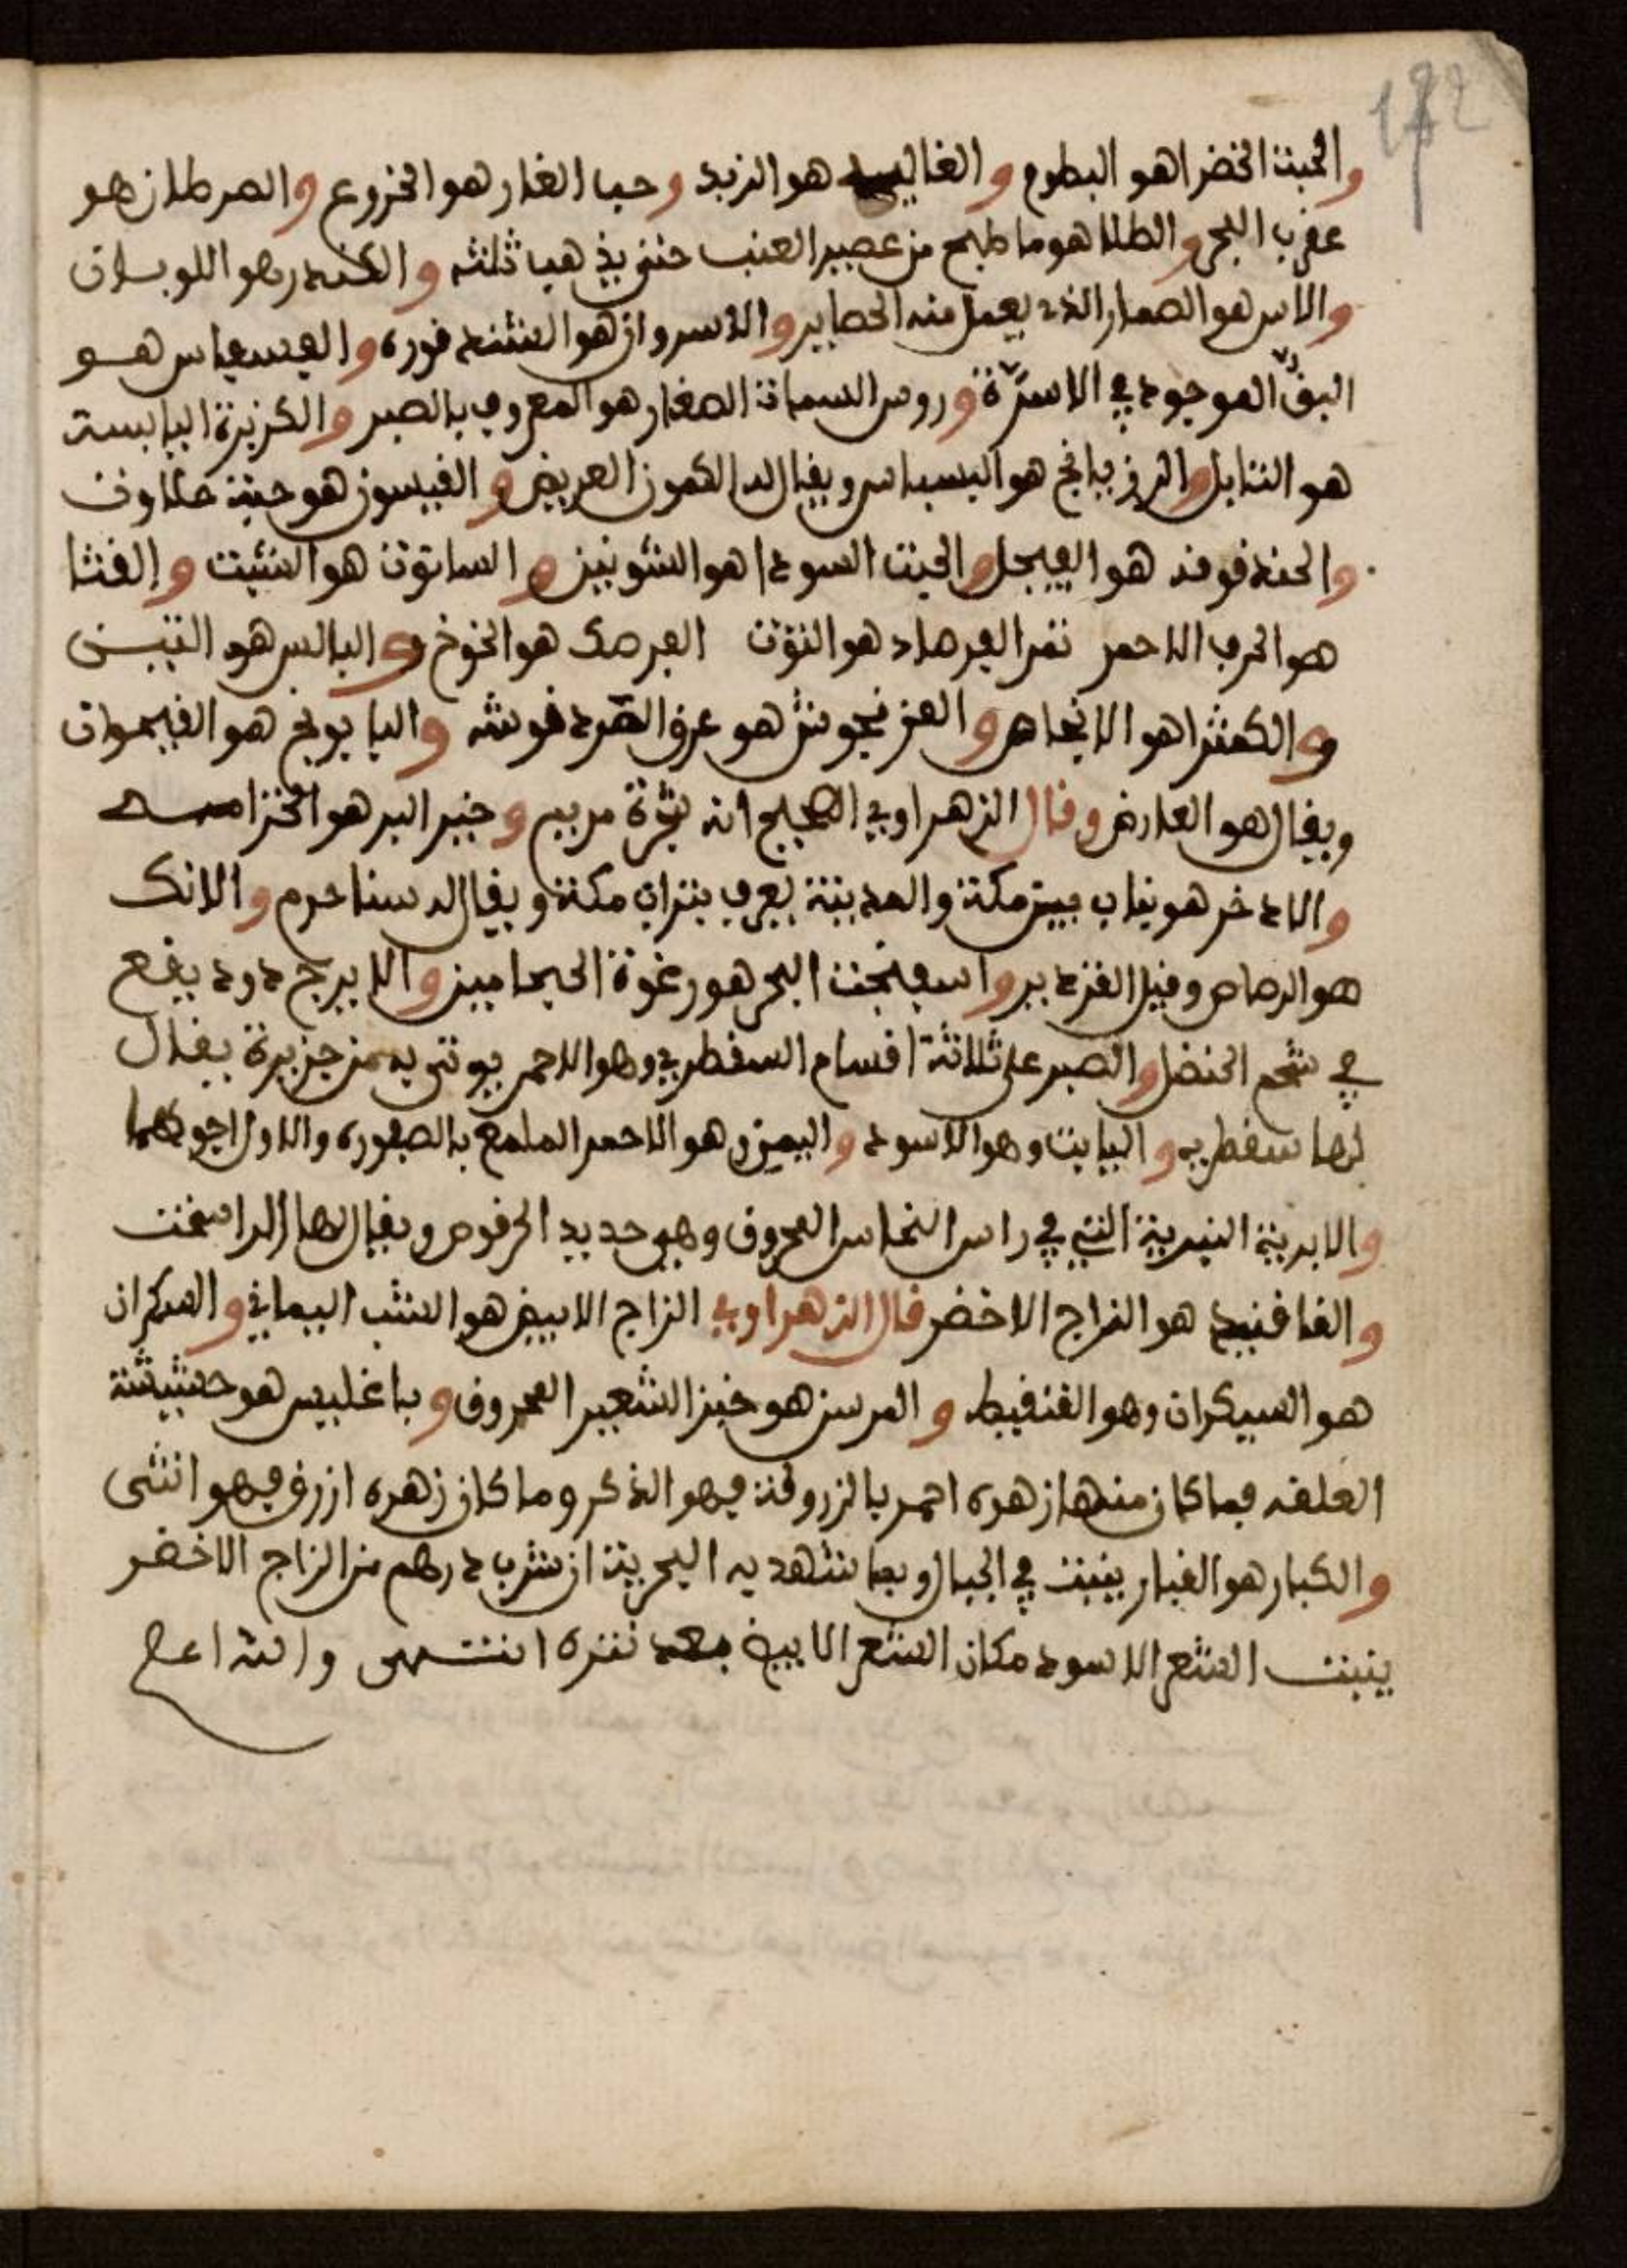 172
والحبة الخضرا هو البطوم والغالية هو الزبد وحب الغار هو الخروع والصرطان هو
عقرب البحر والطلا هو ما طبخ من عصير العنب حتى يذهب ثلثه والكندر هو اللوبان
والاس هو الصمار الذي يعمل منه الحصاير والاسروان هو الشندقوره والفسفاس هو
البق الموجود في الاسرّة وروس السمان الصغار هو المعروف بالصبر والكزبرة اليابسة
هو التابل والرزيانج هو البسباس ويقال له الكمون العريض والفيسون هو حبة حلاوة
والحندقوقة هو الفيجل والحبة السودا هو الشونيز والسانوت هو الشبت والقثا
هو الحرف الاحمر تمر الفرصاد هو التوت الفرصك هو الخوخ والبالس هو التين
والكمثرا هو الانجاص والعرنجوش هو عرق المردقوش والبابونج هو الفيموان
ويقال هو العارض وقال الزهراوي الصحيح انه شجرة مريم وخير البر هو الخزامى
والادخر هو نبات بين مكة والمدينة يعرف بتراب مكة ويقال له سنا حرم والانك
هو الرصاص وقيل القزدير واسفنجة البحر هو رغوة الحجامين والايرج دود يقع
في شحم الحنضل والصبر على ثلاثة اقسام السقطري وهو الاحمر يوتى به من جزيرة يقال
لها سقطريه والبابت وهو الاسود واليمني وهو الاحمر الملمع بالصفوره والاول اجودهما
والابرية النيرية التي في راس النحاس المحروق وهي حديد الحرقوص ويقال لها الراسخت
والقاقنيد هو الزاج الاخضر قال الزهراوي الزاج الابيض هو الشب اليماني والسكران
هو السيكران وهو القنقيط والمرسن هو خبز الشعير المحروق وباغليس هو حشيشة
العلقه فما كان منها زهره احمر بالزروقة فهو الذكر وما كان زهره ازرق فهو انثى
والكبار هو القبار ينبت في الجبال وبما تشهد به التجربة ان شرب درهم من الزاج الاخضر
ينبت الشعر الاسود مكان الشعر الابيض بعد نتره انتهى والله اعلم